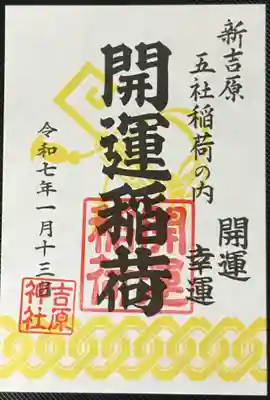 新吉原
五社稲荷の内
開運
幸運
開運稲荷
令和七年一月十三日
開運
稲荷
吉原
神社